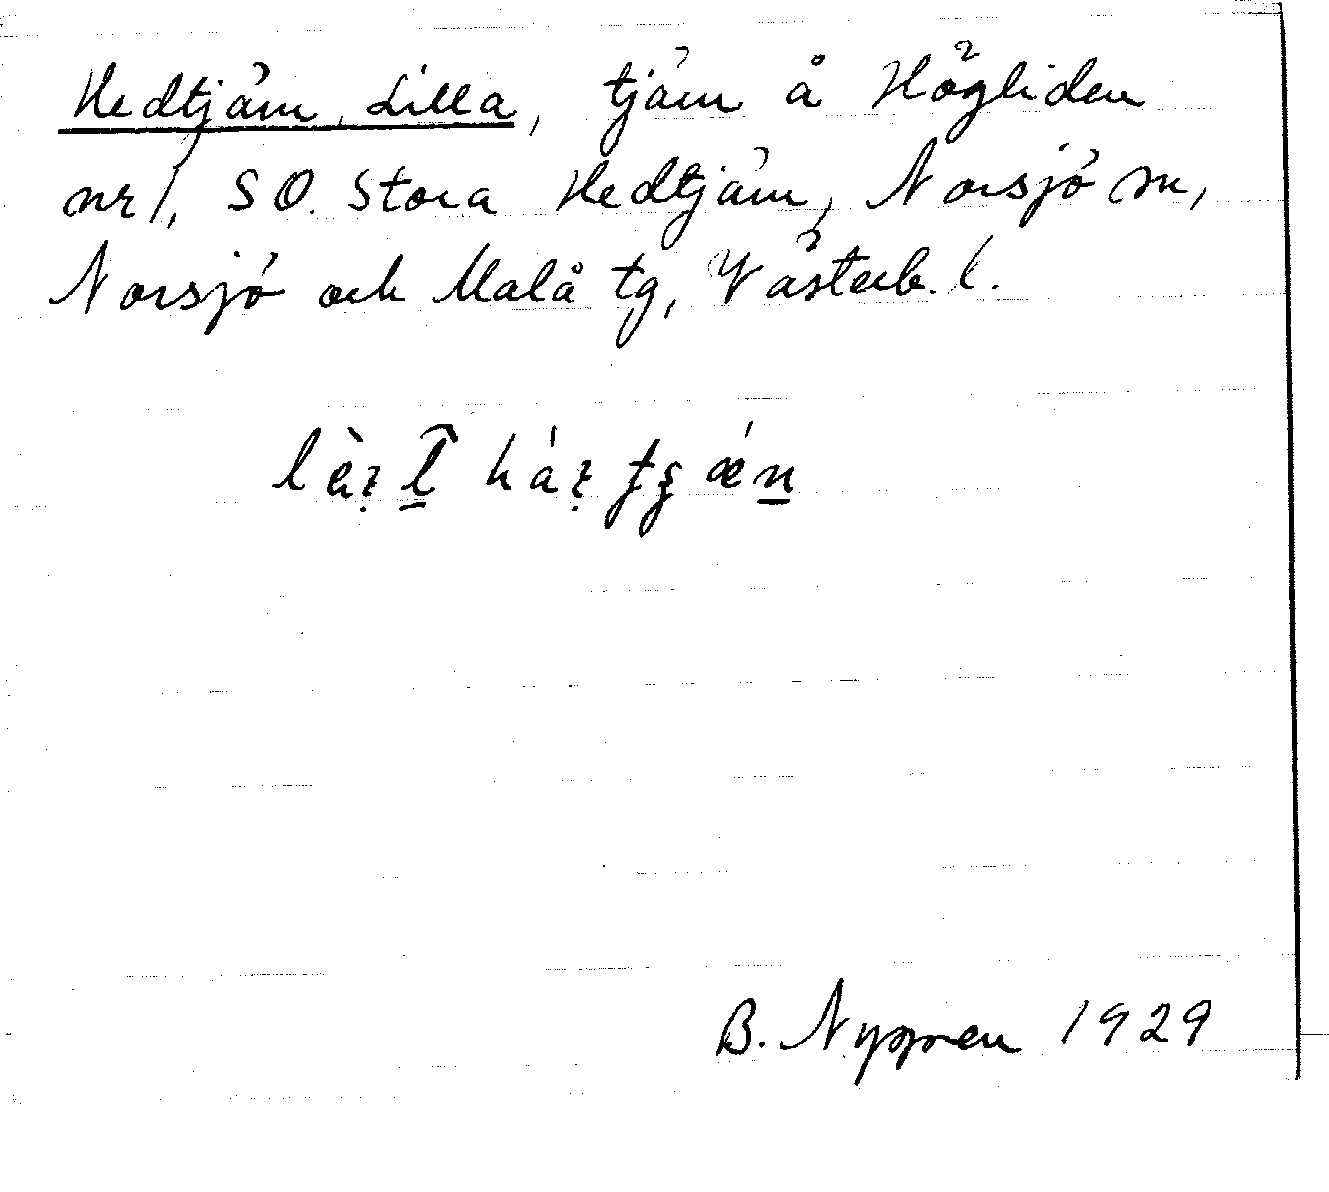 Hedtjärn, Lilla, tjärn å Högliden
nr 1, SO. Stora Hedtjärn, Norsjö sn,
Norsjö och Malå tg, Västerb. l.
B. Nygren 1929